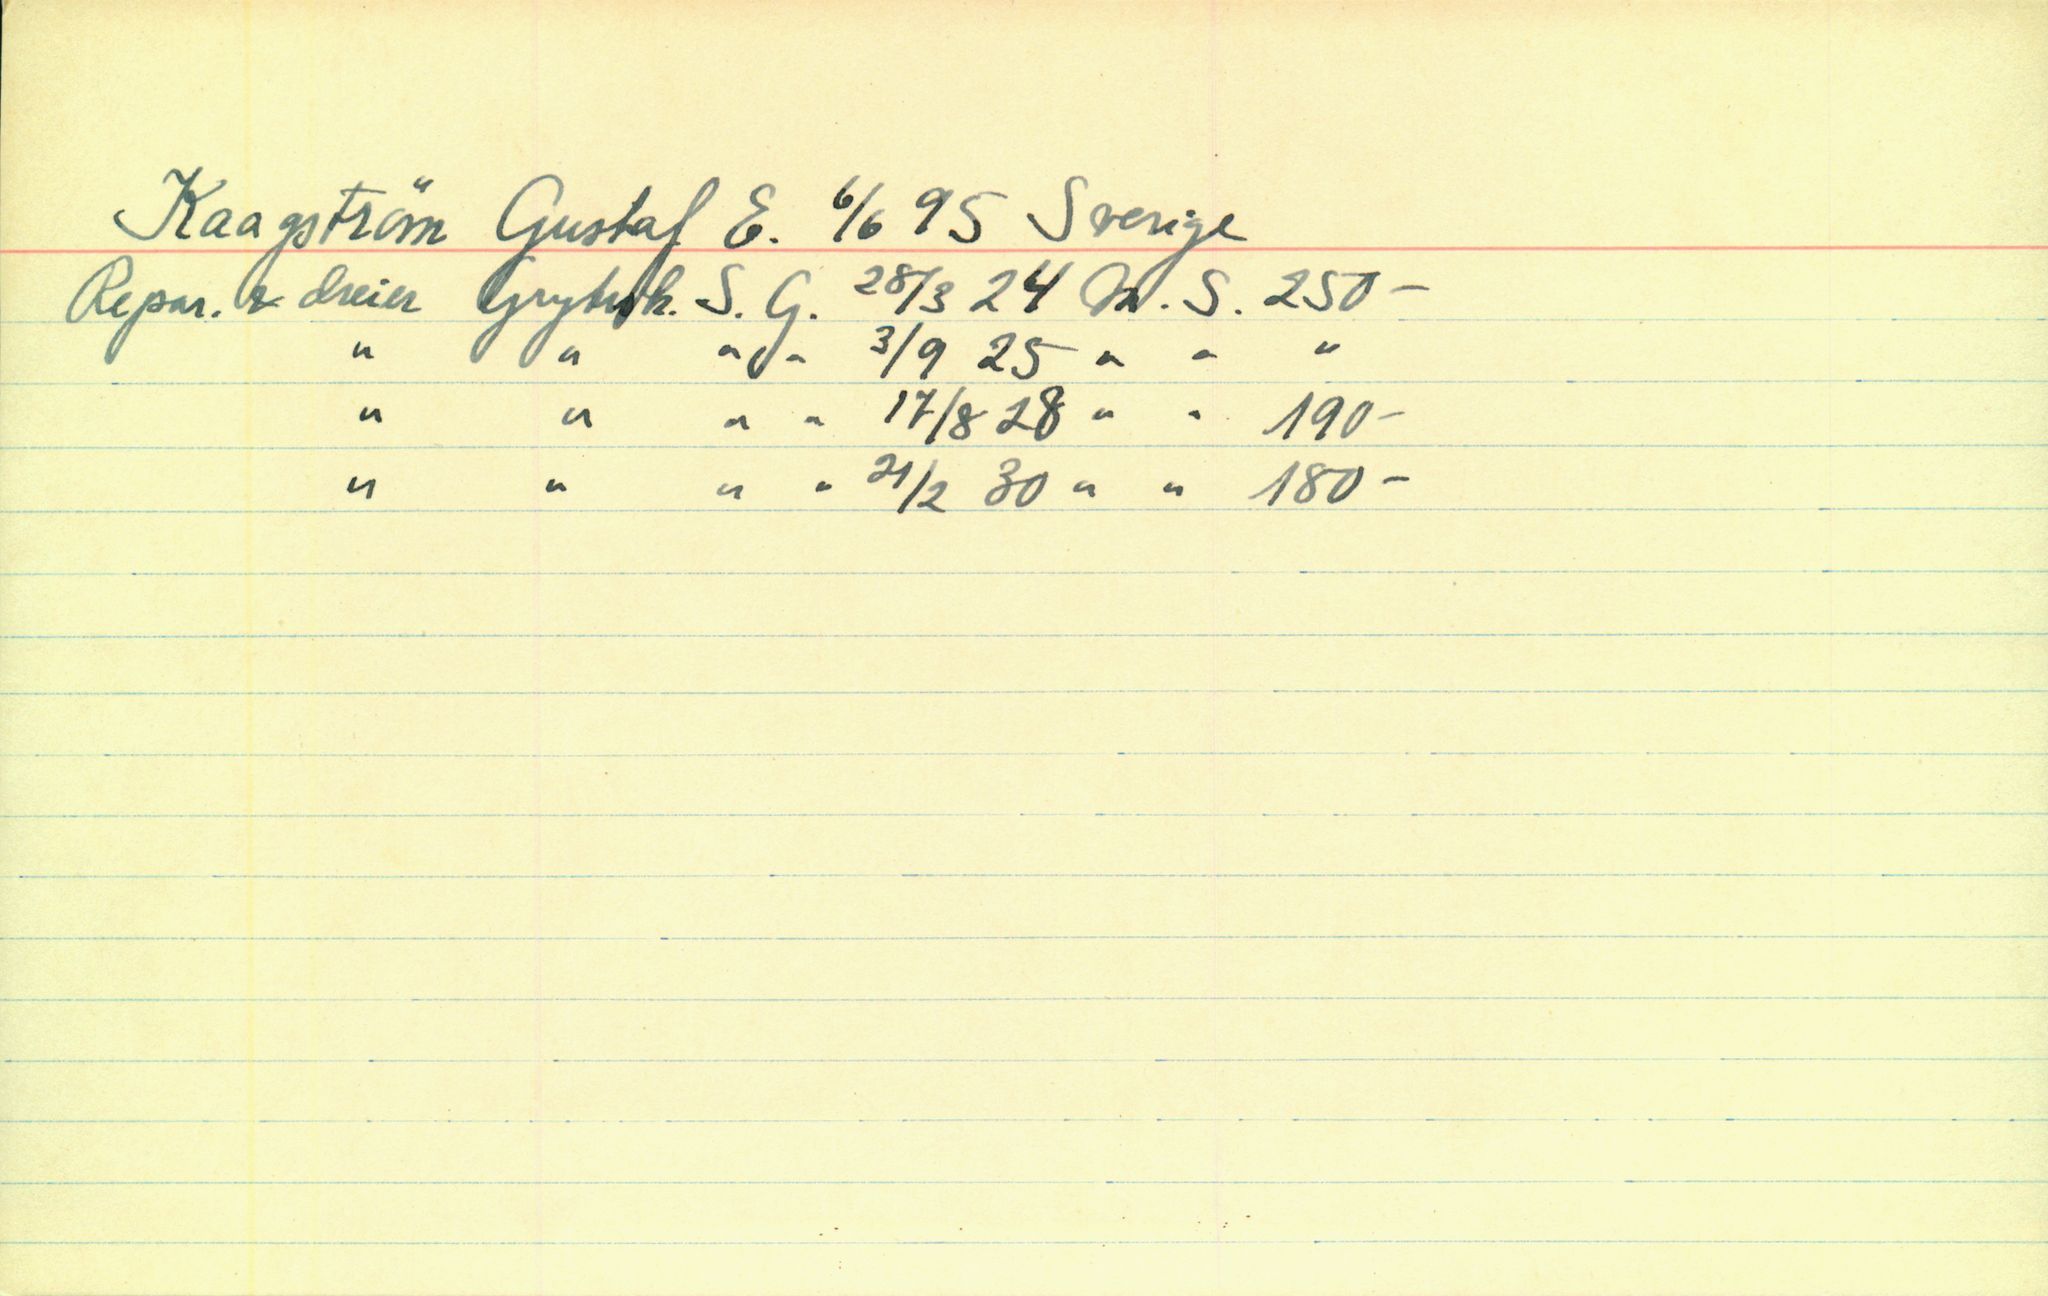 Kaagström Gustaf E. 6/6 95 Sverige
Repar. & dreier Grytvik. S. G. 28/3 24 M. S. 250 -
" " " " 3/9 25 " " "
" " " " 17/8 28 " " 190 -
" " " " 21/2 30 " " 180 -